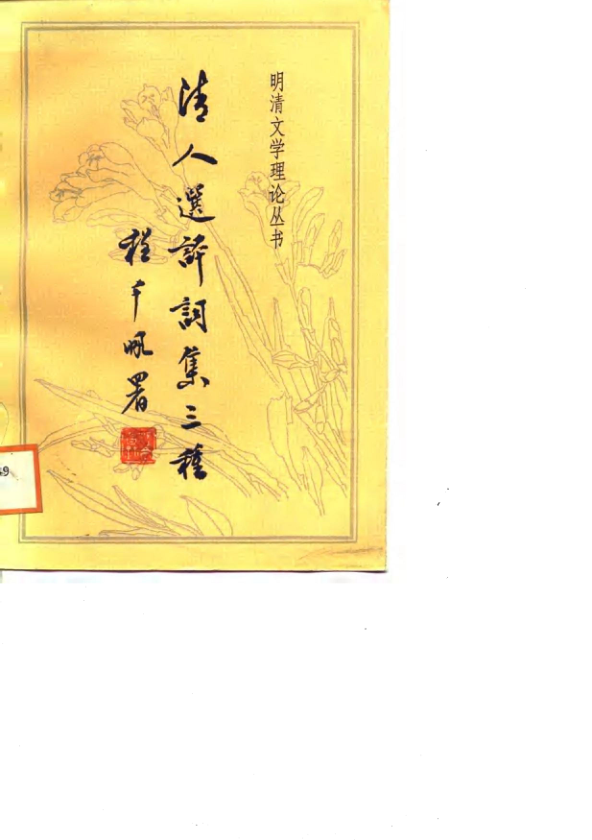 明清文学理论丛书
清人選評詞集三種
程千帆署
59